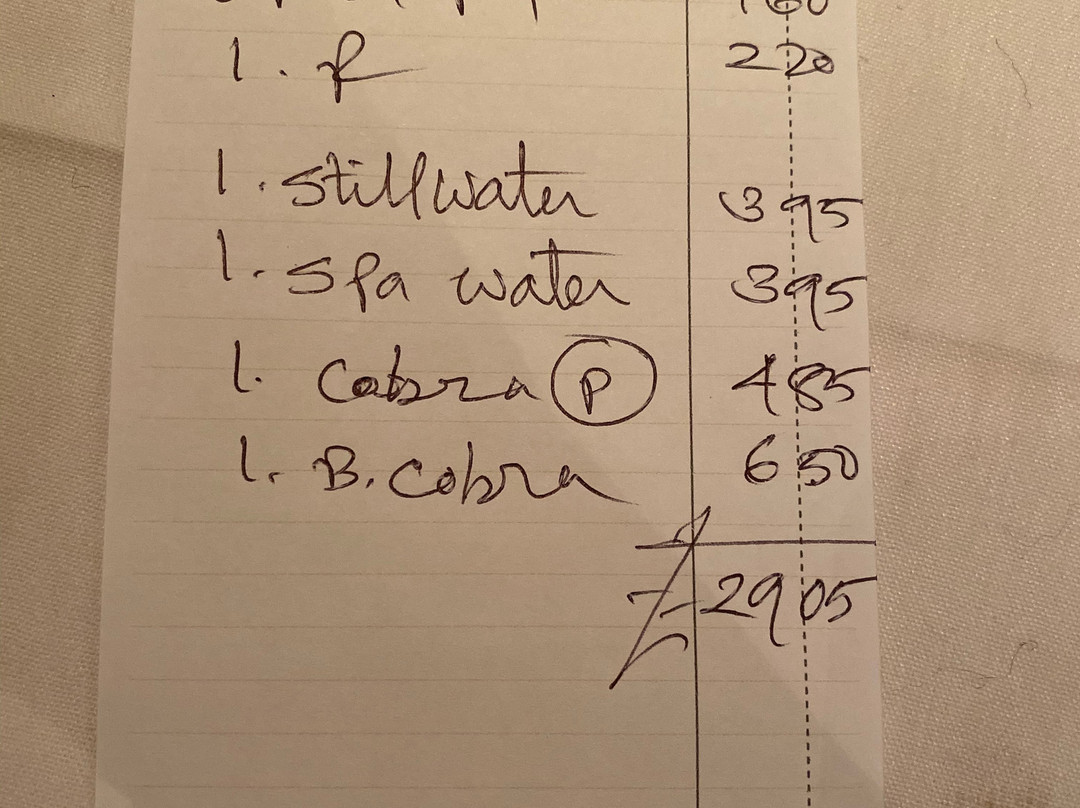 160
1. R 220
1. Still water 3 95
1. Spa water 3 95
1. Cobra P 4 85
1. B. Cobra 6 50
£ 29 05